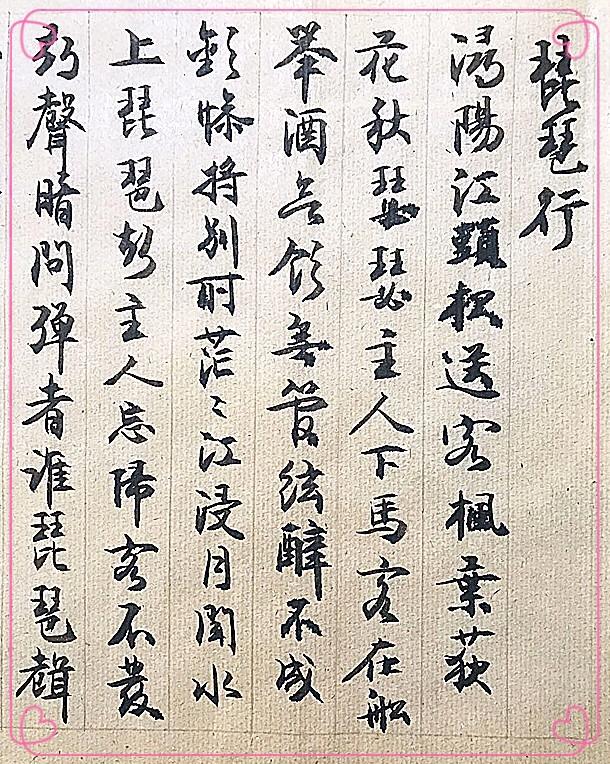 琵琶行
潯陽江頭夜送客楓葉荻
花秋瑟瑟主人下馬客在船
舉酒欲飲無管絃醉不成
歡慘將別時茫〻江浸月聞水
上琵琶聲主人忘歸客不發
尋聲暗問彈者誰琵琶聲